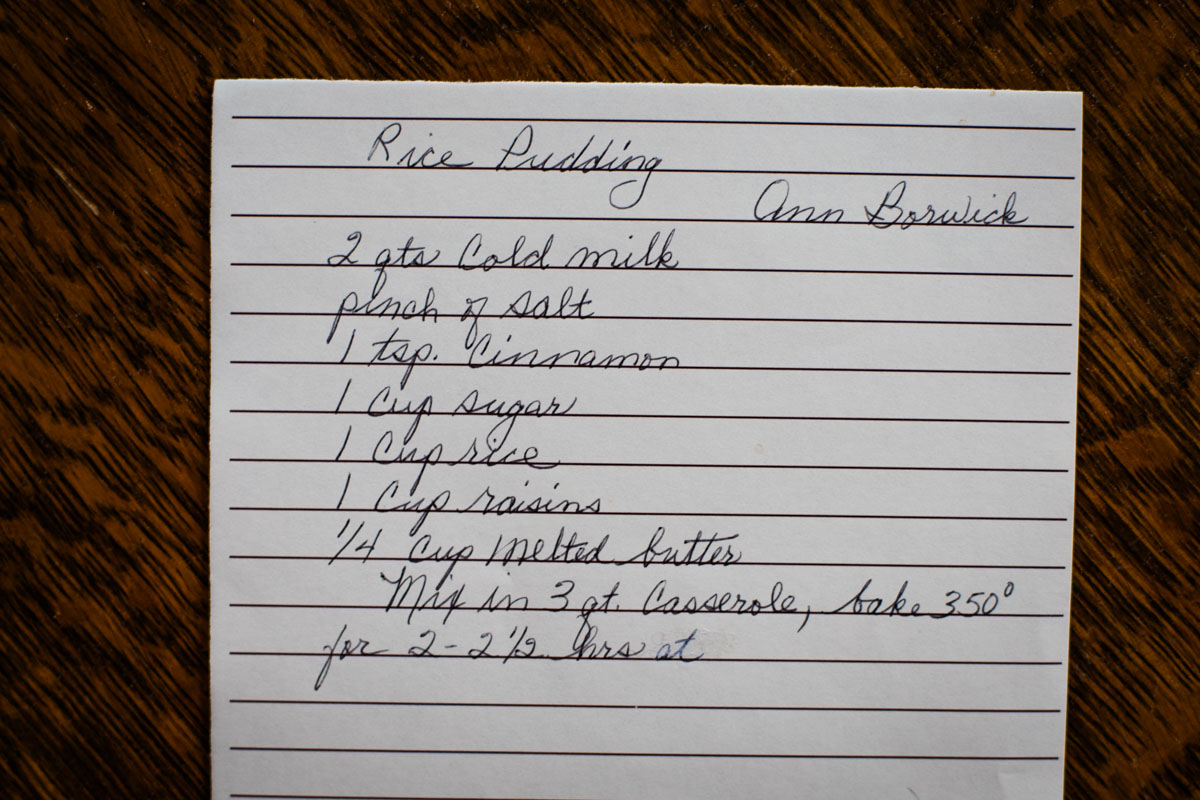 Rice Pudding
Ann Borwick
2 qts Cold milk
pinch of salt
1 tsp. Cinnamon
1 Cup sugar
1 Cup rice
1 Cup raisins
1/4 Cup Melted butter
Mix in 3 qt. Casserole, bake 350°
for 2-2 1/2 hrs at